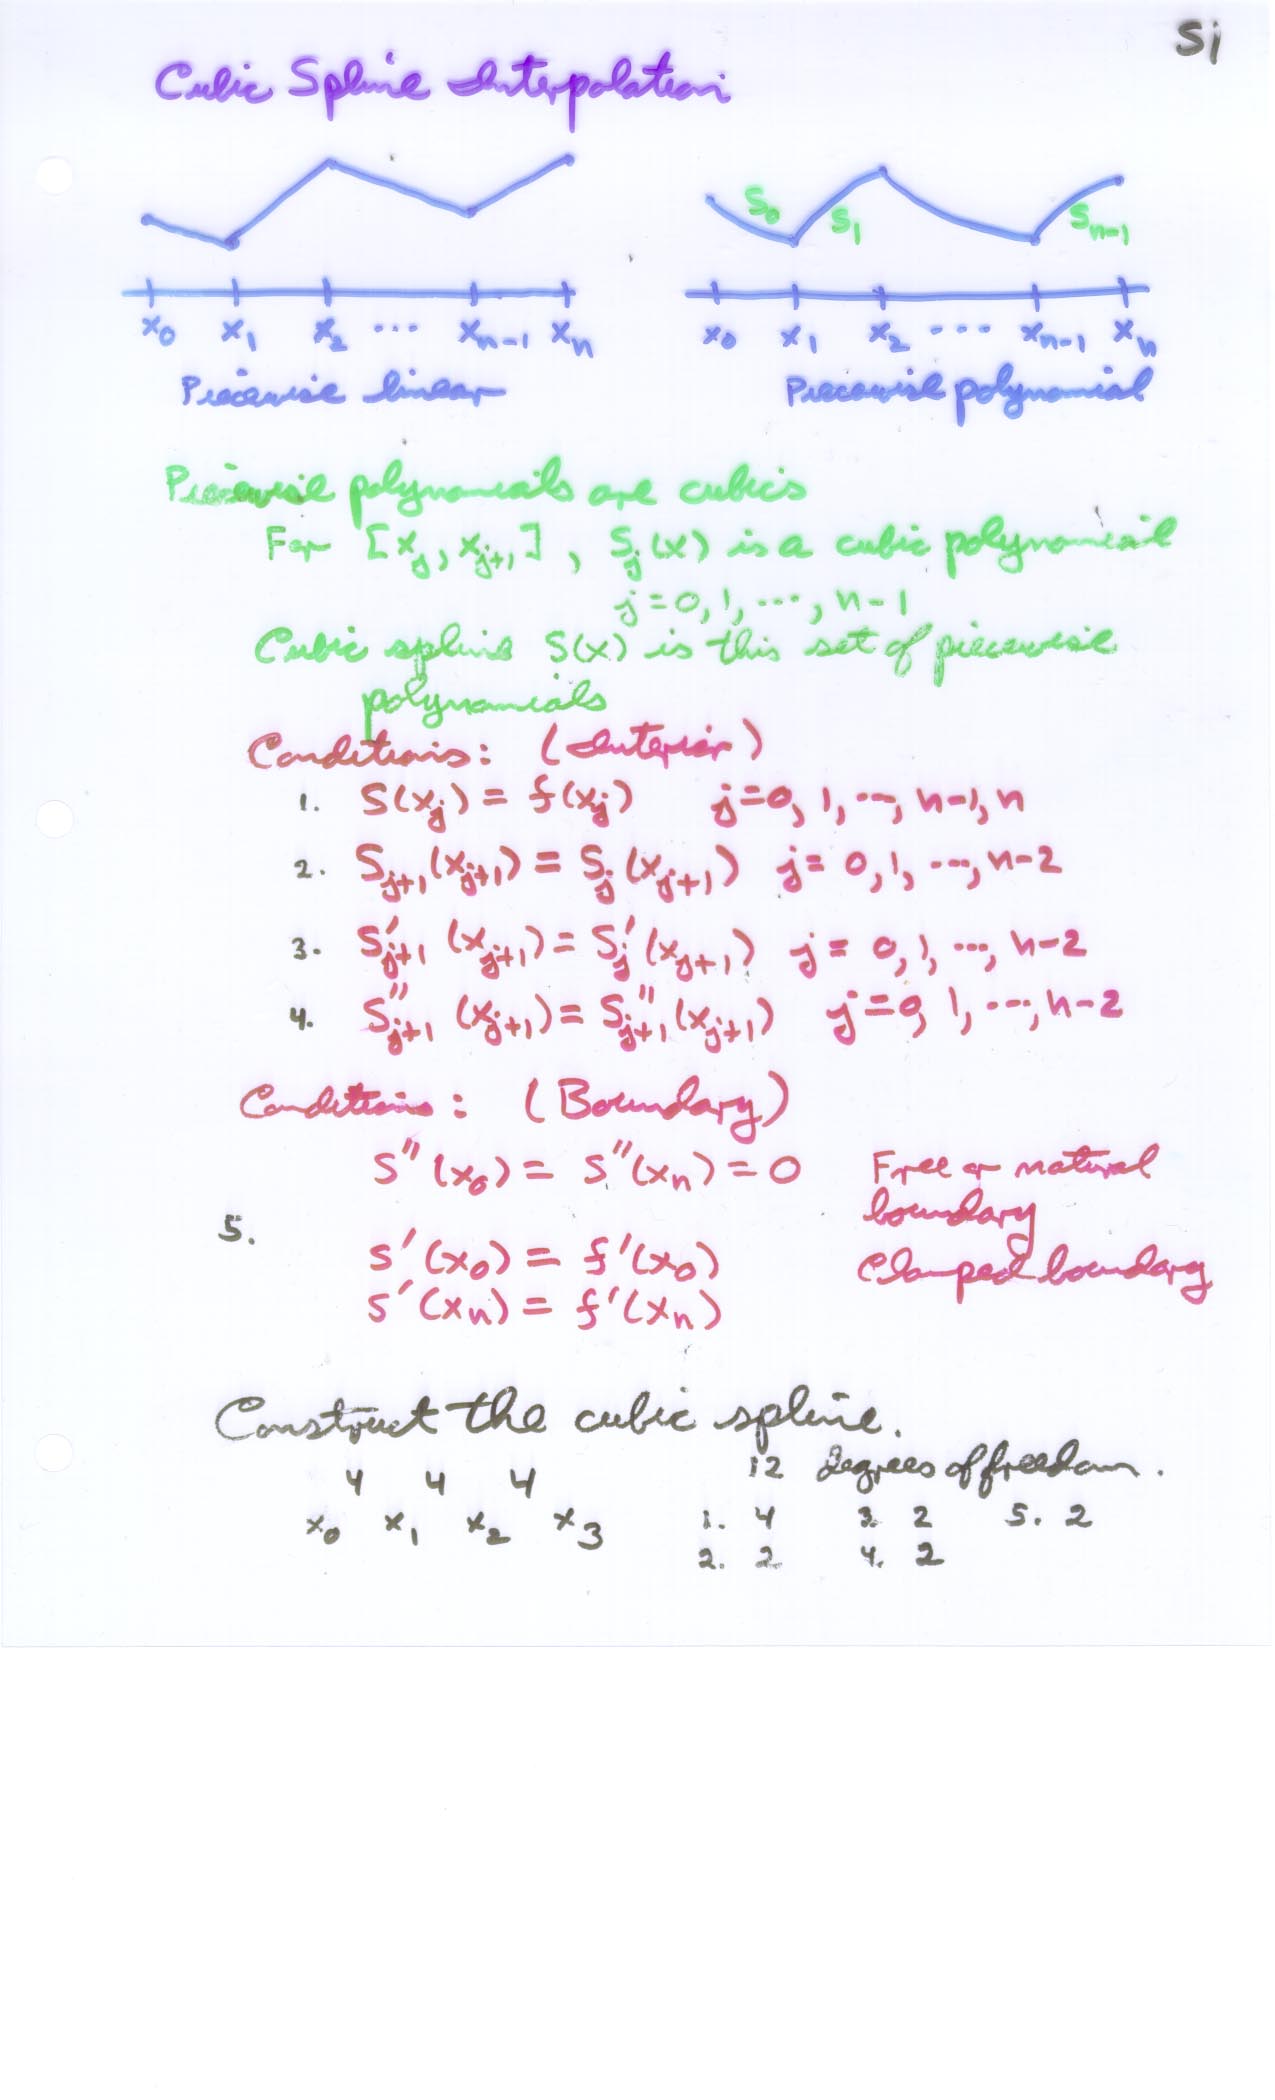 S1
Cubic Spline Interpolation
S₀ S₁ Sₙ₋₁
x₀ x₁ x₂ ... xₙ₋₁ xₙ
x₀ x₁ x₂ .... xₙ₋₁ xₙ
Piecewise linear
Piecewise polynomial
Piecewise polynomials are cubics
For [xⱼ, xⱼ₊₁], Sⱼ(x) is a cubic polynomial
j = 0, 1, ..., n-1
Cubic spline S(x) is this set of piecewise
polynomials
Conditions: (Interior)
1. S(xⱼ) = f(xⱼ) j=0, 1, ..., n-1, n
2. Sⱼ₊₁(xⱼ₊₁) = Sⱼ(xⱼ₊₁) j = 0, 1, ..., n-2
3. S'ⱼ₊₁(xⱼ₊₁) = S'ⱼ(xⱼ₊₁) j = 0, 1, ..., n-2
4. S''ⱼ₊₁(xⱼ₊₁) = S''ⱼ₊₁(xⱼ₊₁) j = 0, 1, ..., n-2
Conditions: (Boundary)
S''(x₀) = S''(xₙ) = 0 Free or natural
boundary
5.
S'(x₀) = f'(x₀) Clamped boundary
S'(xₙ) = f'(xₙ)
Construct the cubic spline.
4 4 4 12 degrees of freedom.
x₀ x₁ x₂ x₃ 1. 4 3. 2 5. 2
2. 2 4. 2